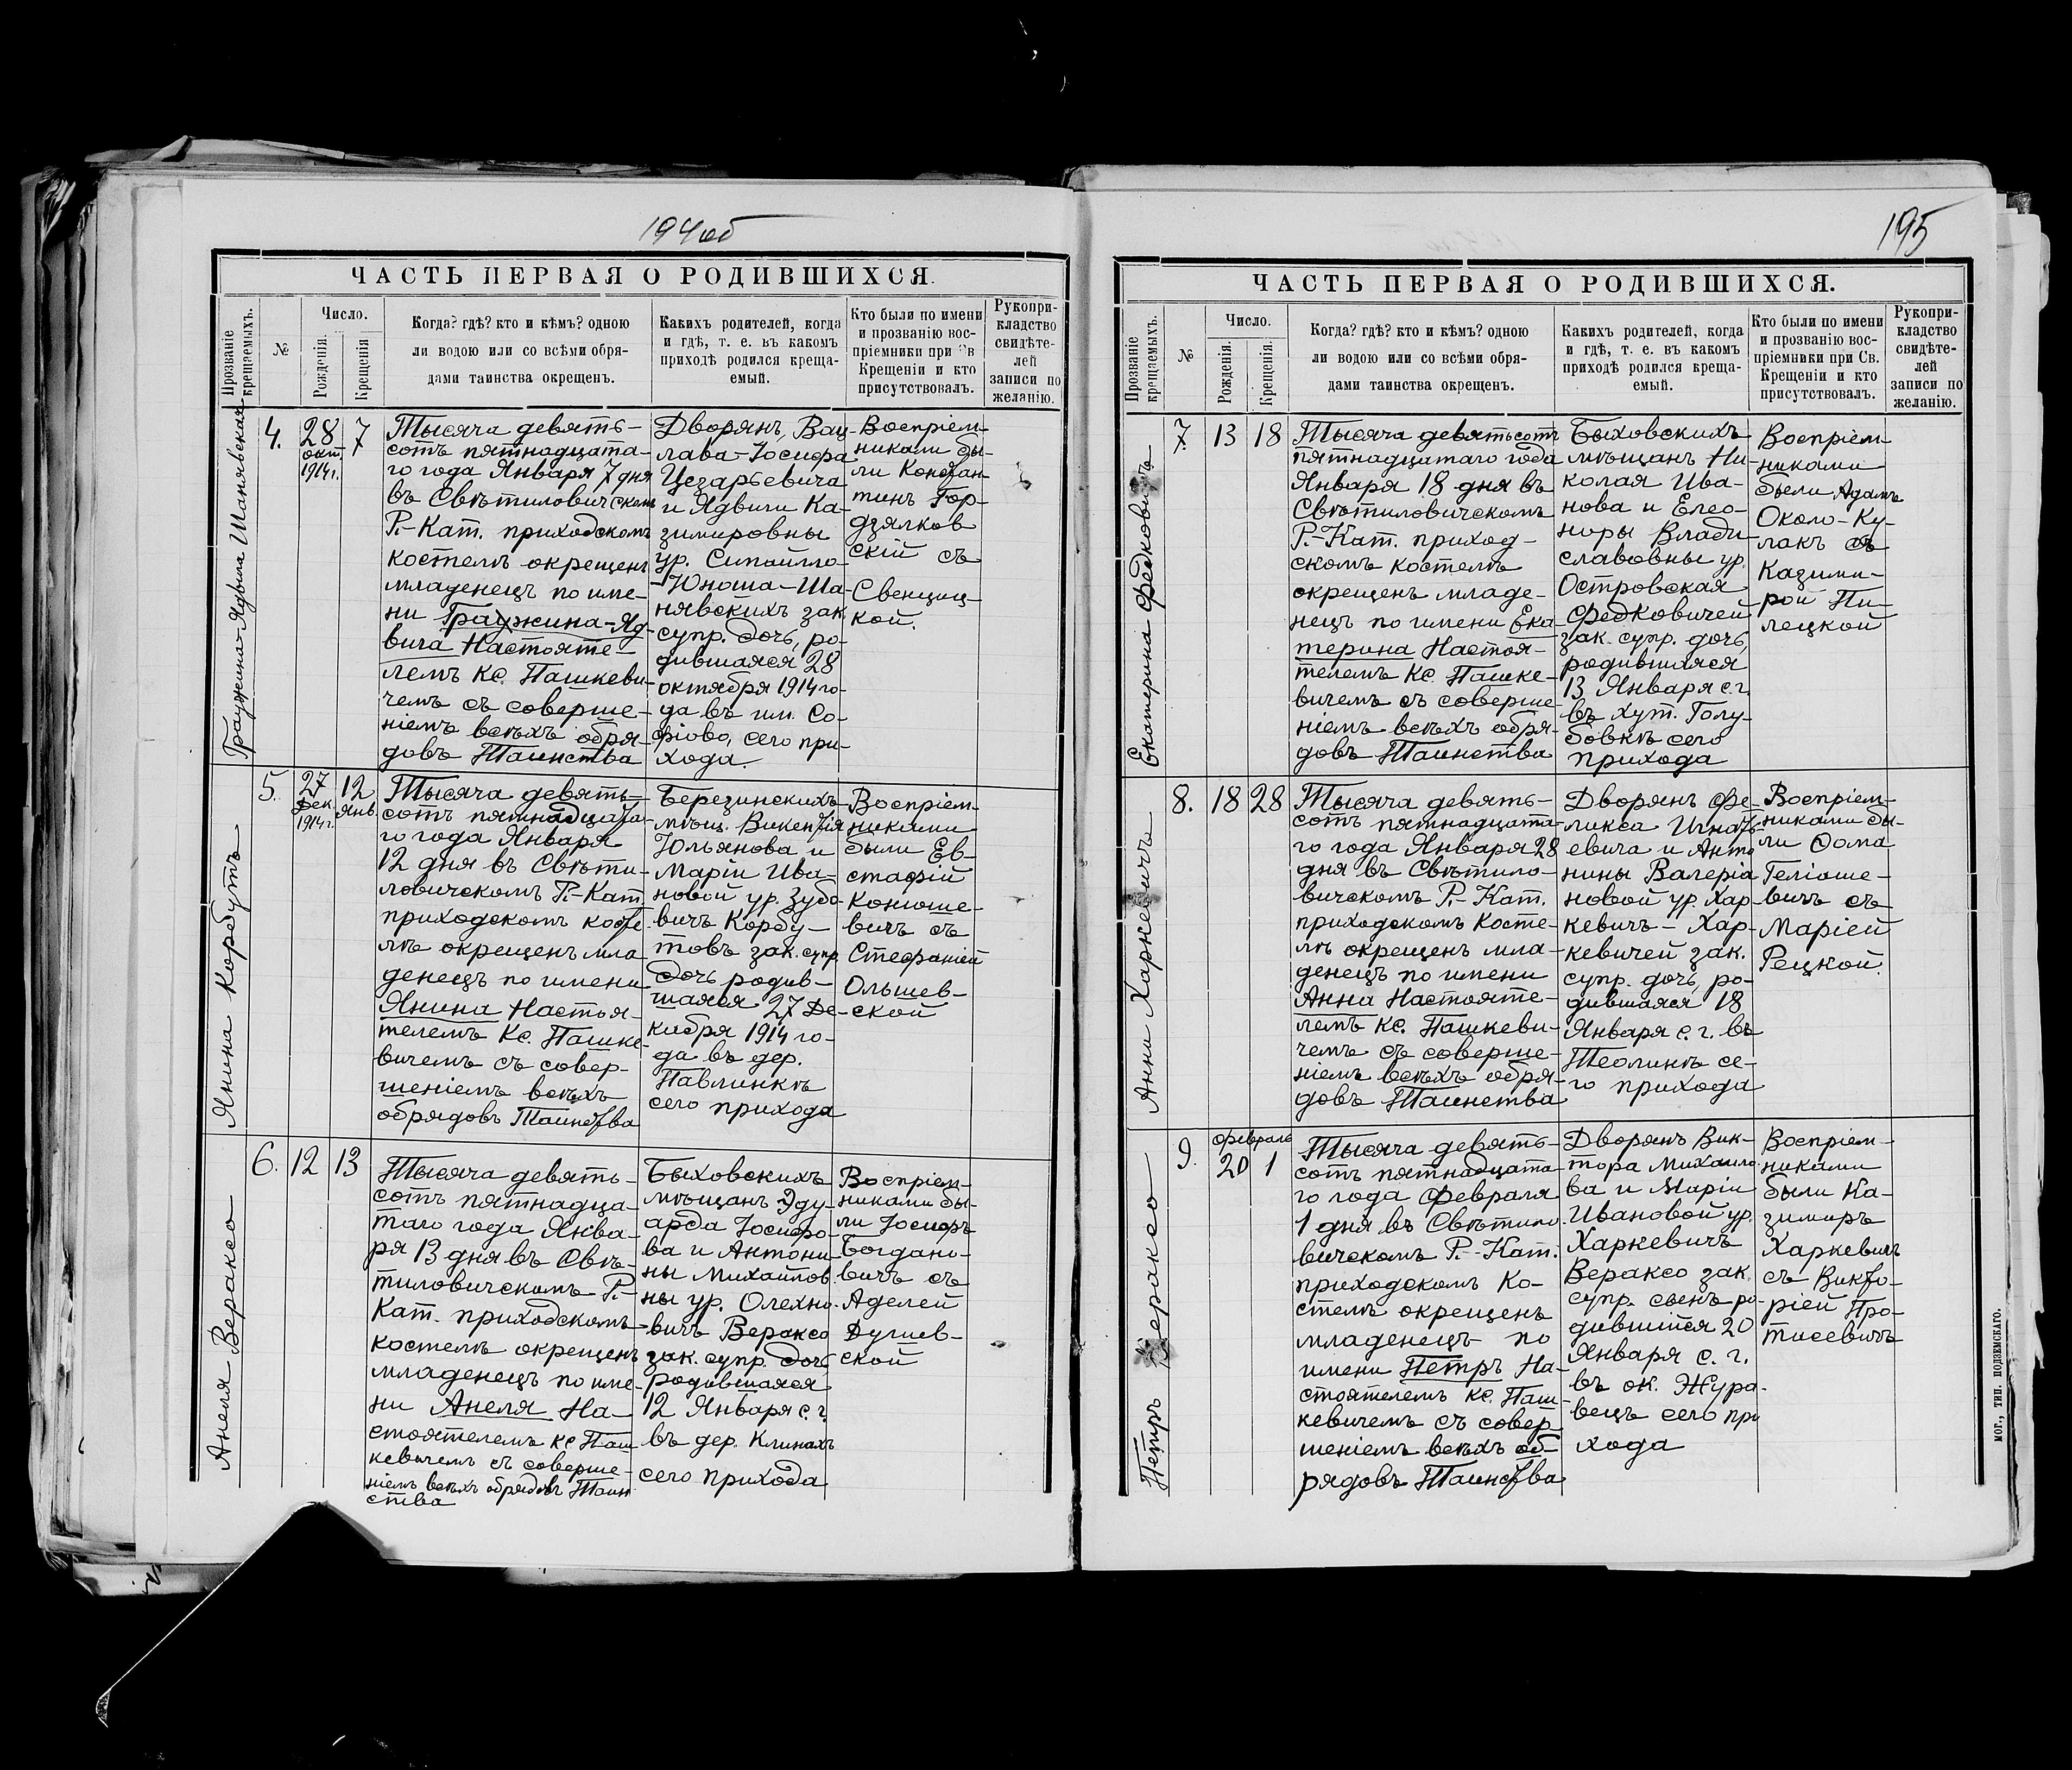 194об
ЧАСТЬ ПЕРВАЯ О РОДИВШИХСЯ.
Прозваніе
крещаемыхъ.
№
Число.
Рожденія.
Крещенія
Когда? гдѣ? кто и кѣмъ? одною
ли водою или со всѣми обря-
дами таинства окрещенъ.
Какихъ родителей, когда
и гдѣ, т. е. въ какомъ
приходѣ родился креща-
емый.
Кто были по имени
и прозванію вос-
пріемники при Св
Крещеніи и кто
присутствовалъ.
Рукопри-
кладство
свидѣте-
лей
записи по
желанію.
Гражина-Ядвига Шанявская
4.
28
окт.
1914г.
7
Тысяча девять-
сотъ пятнадцата-
го года Января 7 дня
въ Свѣтиловичскомъ
Р.-Кат. приходскомъ
костелѣ окрещенъ
младенецъ по име-
ни Гражина-Яд-
вига Настояте-
лемъ Кс. Пашкеви-
чемъ съ соверше-
ніемъ всѣхъ обря-
довъ Таинства
Дворянъ, Вац-
лава-Іосифа
Цезарьевича
и Ядвиги Ка-
зимировны
ур. Сипайлло
-Юноша-Ша-
нявскихъ зак.
супр. дочь, ро-
дившаяся 28
октября 1914 го-
да въ им. Со-
фіово, сего при-
хода.
Воспріем-
никами бы-
ли Констан-
тинъ Гор-
дзялков
скій съ
Свенциц-
кой.
Янина Корбутъ
5.
27
Дек.
1914г.
12
Янв.
Тысяча девять-
сотъ пятнадцата-
го года Января
12 дня въ Свѣти-
ловичскомъ Р.-Кат.
приходскомъ косте-
лѣ окрещенъ мла
денецъ по имени
Янина Настоя-
телемъ Кс. Пашке-
вичемъ съ совер-
шеніемъ всѣхъ
обрядовъ Таинства
Березинскихъ
мѣщ. Викентія
Юльянова и
Маріи Ива-
новой ур. Зубо
вичъ Корбу-
товъ зак. супр
дочь родив-
шаяся 27 Де-
кабря 1914 го-
да въ дер.
Павлинкѣ
сего прихода
Воспріем-
никами
были Ев-
стафій
Конюше-
вичъ съ
Стефаніей
Ольшев-
ской
Анеля Вераксо
6.
12
13
Тысяча девять-
сотъ пятнадца-
таго года Янва-
ря 13 дня въ Свѣ-
тиловичскомъ Р.-
Кат. приходскомъ
костелѣ окрещенъ
младенецъ по име-
ни Анеля На-
стоятелемъ кс Паш
кевичемъ съ соверше-
ніемъ всѣхъ обрядовъ Таин
ства
Быховскихъ
мѣщанъ Эду-
арда Іосифо-
ва и Антони
ны Михайлов
ны ур. Олехно-
вичъ Вераксо
зак. супр. дочь,
родившаяся
12 Января с. г.
въ дер. Клинахъ
сего прихода
Воспріем-
никами бы-
ли Іосифъ
Богдано-
вичъ съ
Аделей
Душев-
ской
195
ЧАСТЬ ПЕРВАЯ О РОДИВШИХСЯ.
Прозваніе
крещаемыхъ.
№
Число.
Рожденія.
Крещенія.
Когда? гдѣ? кто и кѣмъ? одною
ли водою или со всѣми обря-
дами таинства окрещенъ.
Какихъ родителей, когда
и гдѣ, т. е. въ какомъ
приходѣ родился креща-
емый.
Кто были по имени
и прозванію вос-
пріемники при Св.
Крещеніи и кто
присутствовалъ.
Рукопри-
кладство
свидѣте-
лей
записи по
желанію.
Екатерина Федковичъ
7.
13
18
Тысяча девятьсотъ
пятнадцатаго года
Января 18 дня въ
Свѣтиловичскомъ
Р.-Кат. приход-
скомъ костелѣ
окрещенъ младе-
нецъ по имени Ека
терина Настоя-
телемъ Кс. Пашке-
вичемъ съ соверше
ніемъ всѣхъ обря-
довъ Таинства
Быховскихъ
мѣщанъ Ни-
колая Ива-
нова и Елео-
норы Влади
славовны ур.
Островская
Федковичей
зак. супр. дочь,
родившаяся
13 Января с. г.
въ хут. Голу-
бовкѣ сего
прихода
Воспріем-
никами
были Адамъ
Около-Ку-
лакъ съ
Казими-
рой Пи-
лецкой
Анна Харкевичъ
8.
18
28
Тысяча девять-
сотъ пятнадцата-
го года Января 28
дня въ Свѣтило-
вичскомъ Р.-Кат.
приходскомъ Косте-
лѣ окрещенъ мла-
денецъ по имени
Анна Настояте-
лемъ Кс. Пашкеви-
чемъ съ соверше-
ніемъ всѣхъ обря-
довъ Таинства
Дворянъ Фе-
ликса Игнать-
евича и Анто
нины Валеріа
новой ур. Хар
кевичъ-Хар-
кевичей зак.
супр. дочь, ро-
дившаяся 18
Января с. г. въ
Теолинѣ се-
го прихода
Воспріем-
никами бы-
ли Фома
Геліоше-
вичъ съ
Маріей
Рецкой.
Петръ Вераксо
9.
Февраль
20
1
Тысяча девять-
сотъ пятнадцата-
го года Февраля
1 дня въ Свѣтило-
вичскомъ Р.-Кат.
приходскомъ Ко-
стелѣ окрещенъ
младенецъ по
имени Петръ На-
стоятелемъ кс. Паш-
кевичемъ съ совер-
шеніемъ всѣхъ об-
рядовъ Таинства
Дворянъ Вик-
тора Михаило
ва и Маріи
Ивановой ур.
Харкевичъ
Вераксо зак.
супр. сынъ ро-
дившійся 20
Января с. г.
въ ок. Жура-
вецъ сего при
хода
Воспріем-
никами
были Ка-
зимиръ
Харкевичъ
съ Викто-
ріей Про-
тасевичъ
МОГ., ТИП. ПОДЗЕМСКАГО.